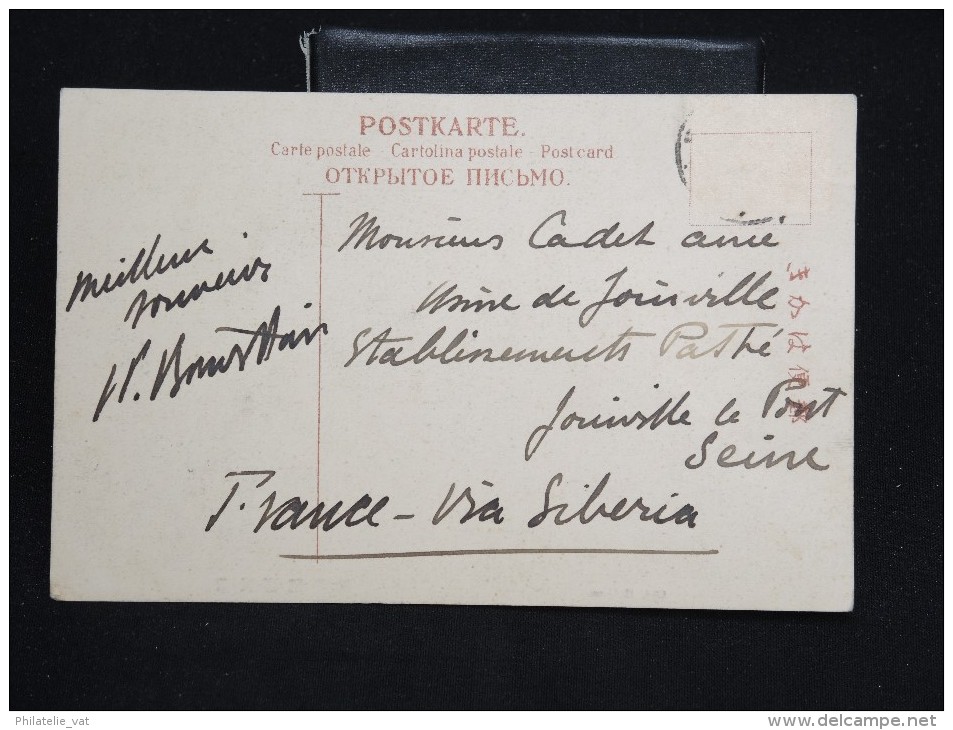 POSTKARTE.
Carte postale - Cartolina postale - Post card
ОТКРЫТОЕ ПИСЬМО.
きかは便郵
Meilleurs
souvenirs
Monsieur Cadet ainé
Usine de Joinville
Etablissements Pathé
Joinville le Pont
Seine
France - Via Siberia
Philatelie_vat
www.delcampe.net